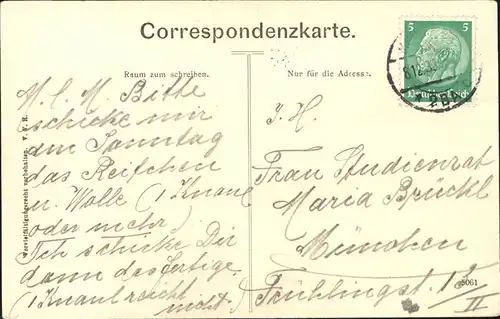 Correspondenzkarte.
Raum zum schreiben.
Nur für die Adresse:
M. l. M. Bitte
schicke mir
am Sonntag
das Reifchen
u. Wolle (1 Knaul
oder mehr)
Ich schicke Dir
dann das fertige.
(1 Knaul reicht
nicht.)
I. H.
Frau Studienrat
Maria Brückl
München
Frühlingst. 1
II
5
5
Deutsches Reich
25061
Vervielfältigungsrecht vorbehalten.